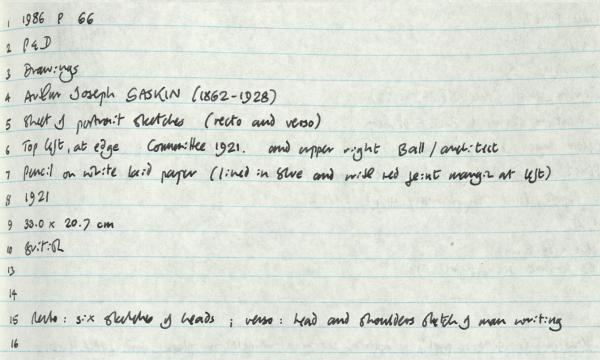 1 1986 P 66
2 P&D
3 Drawings
4 Arthur Joseph GASKIN (1862-1928)
5 Sheet of portrait sketches (recto and verso)
6 Top left, at edge Committee 1921. and upper right Ball / architect
7 Pencil on white laid paper (lined in blue and with red feint margin at left)
8 1921
9 33.0 x 20.7 cm
10 British
13
14
15 Recto : six sketches of heads ; verso : head and shoulders sketch of man writing
16